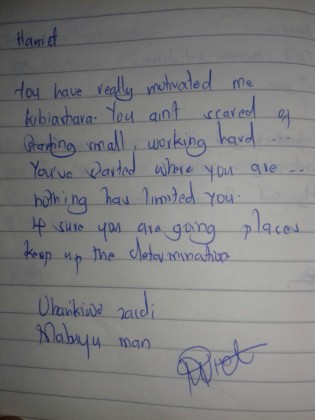 Hamist
You have really motivated me
kibiashara. You aint scared of
starting small, working hard ...
You've started where you are ...
nothing has limited you.
sure you are going places
keep up the determination
Ubarikiwe zaidi
Mabuyu man